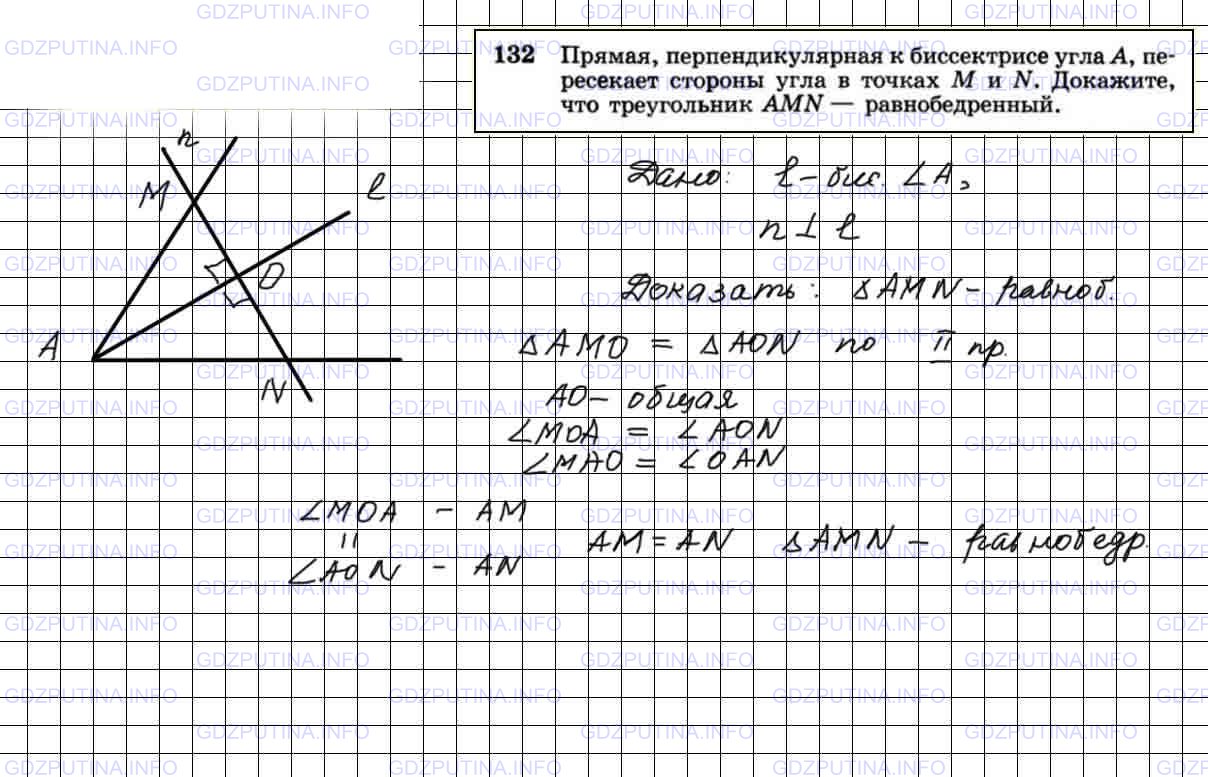 132 Прямая, перпендикулярная к биссектрисе угла A, пе-
ресекает стороны угла в точках M и N. Докажите,
что треугольник AMN — равнобедренный.
n
M
ℓ
O
A
N
Дано: ℓ - бис. ∠A,
n ⊥ ℓ
Доказать: △AMN - равноб.
△AMO = △AON по II пр.
AO - общая
∠MOA = ∠AON
∠MAO = ∠OAN
∠MOA - AM
||
∠AON - AN
AM = AN △AMN - равнобедр.
GDZPUTINA.INFO